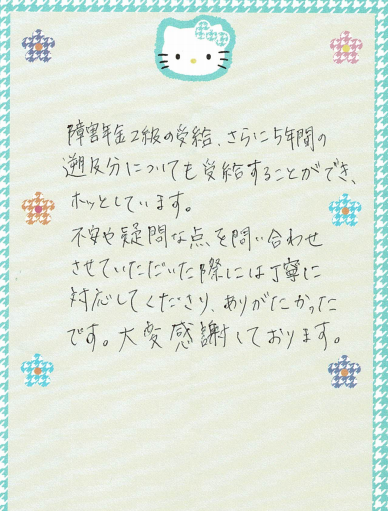 障害年金2級の受給、さらに5年間の
遡及分についても受給することができ、
ホッとしています。
不安や疑問な点を問い合わせ
させていただいた際には丁寧に
対応してくださり、ありがたかった
です。大変感謝しております。